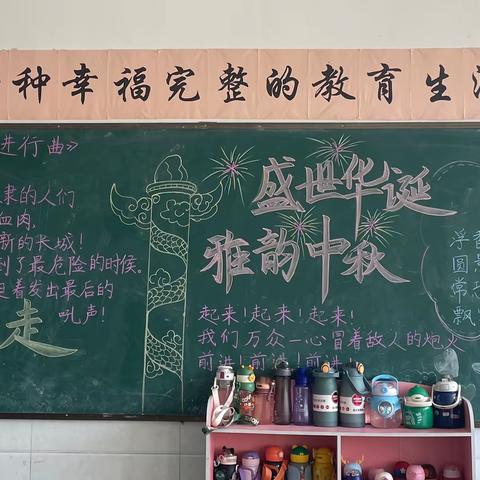 种幸福完整的教育生活
进行曲》
隶的人们
血肉,
新的长城!
到了最危险的时候,
着发出最后的
吼声!
走
盛世华诞
雅韵中秋
起来!起来!起来!
我们万众一心冒着敌人的炮火
前进!前进!前进
浮
圆
常
飘